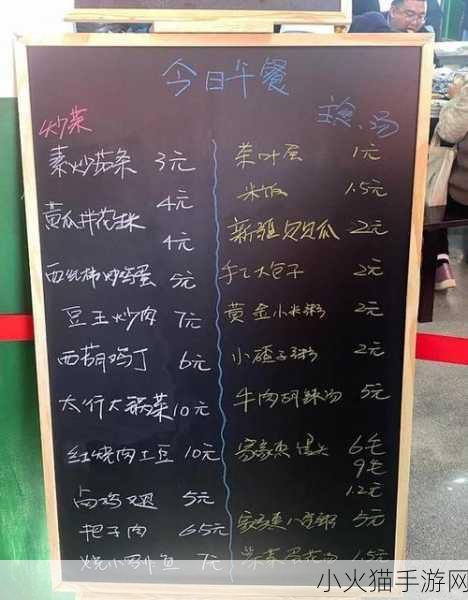 今日午餐
炒菜
素炒茄条 3元
4元
黄瓜拌花生米
4元
西红柿炒鸡蛋 5元
豆王炒肉 7元
西葫鸡丁 6元
太行大锅菜 10元
红烧肉土豆 10元
卤鸡翅 5元
把子肉 6.5元
烧小刀鱼 7元
主食、汤
茶叶蛋 1元
米饭 1.5元
新疆贝贝瓜 2元
手工大包子 2元
黄金小米粥 2元
小碴子粥 2元
牛肉胡辣汤 5元
馒头 6毛
9毛
1.2元
5元
1.5元
小火猫手游网